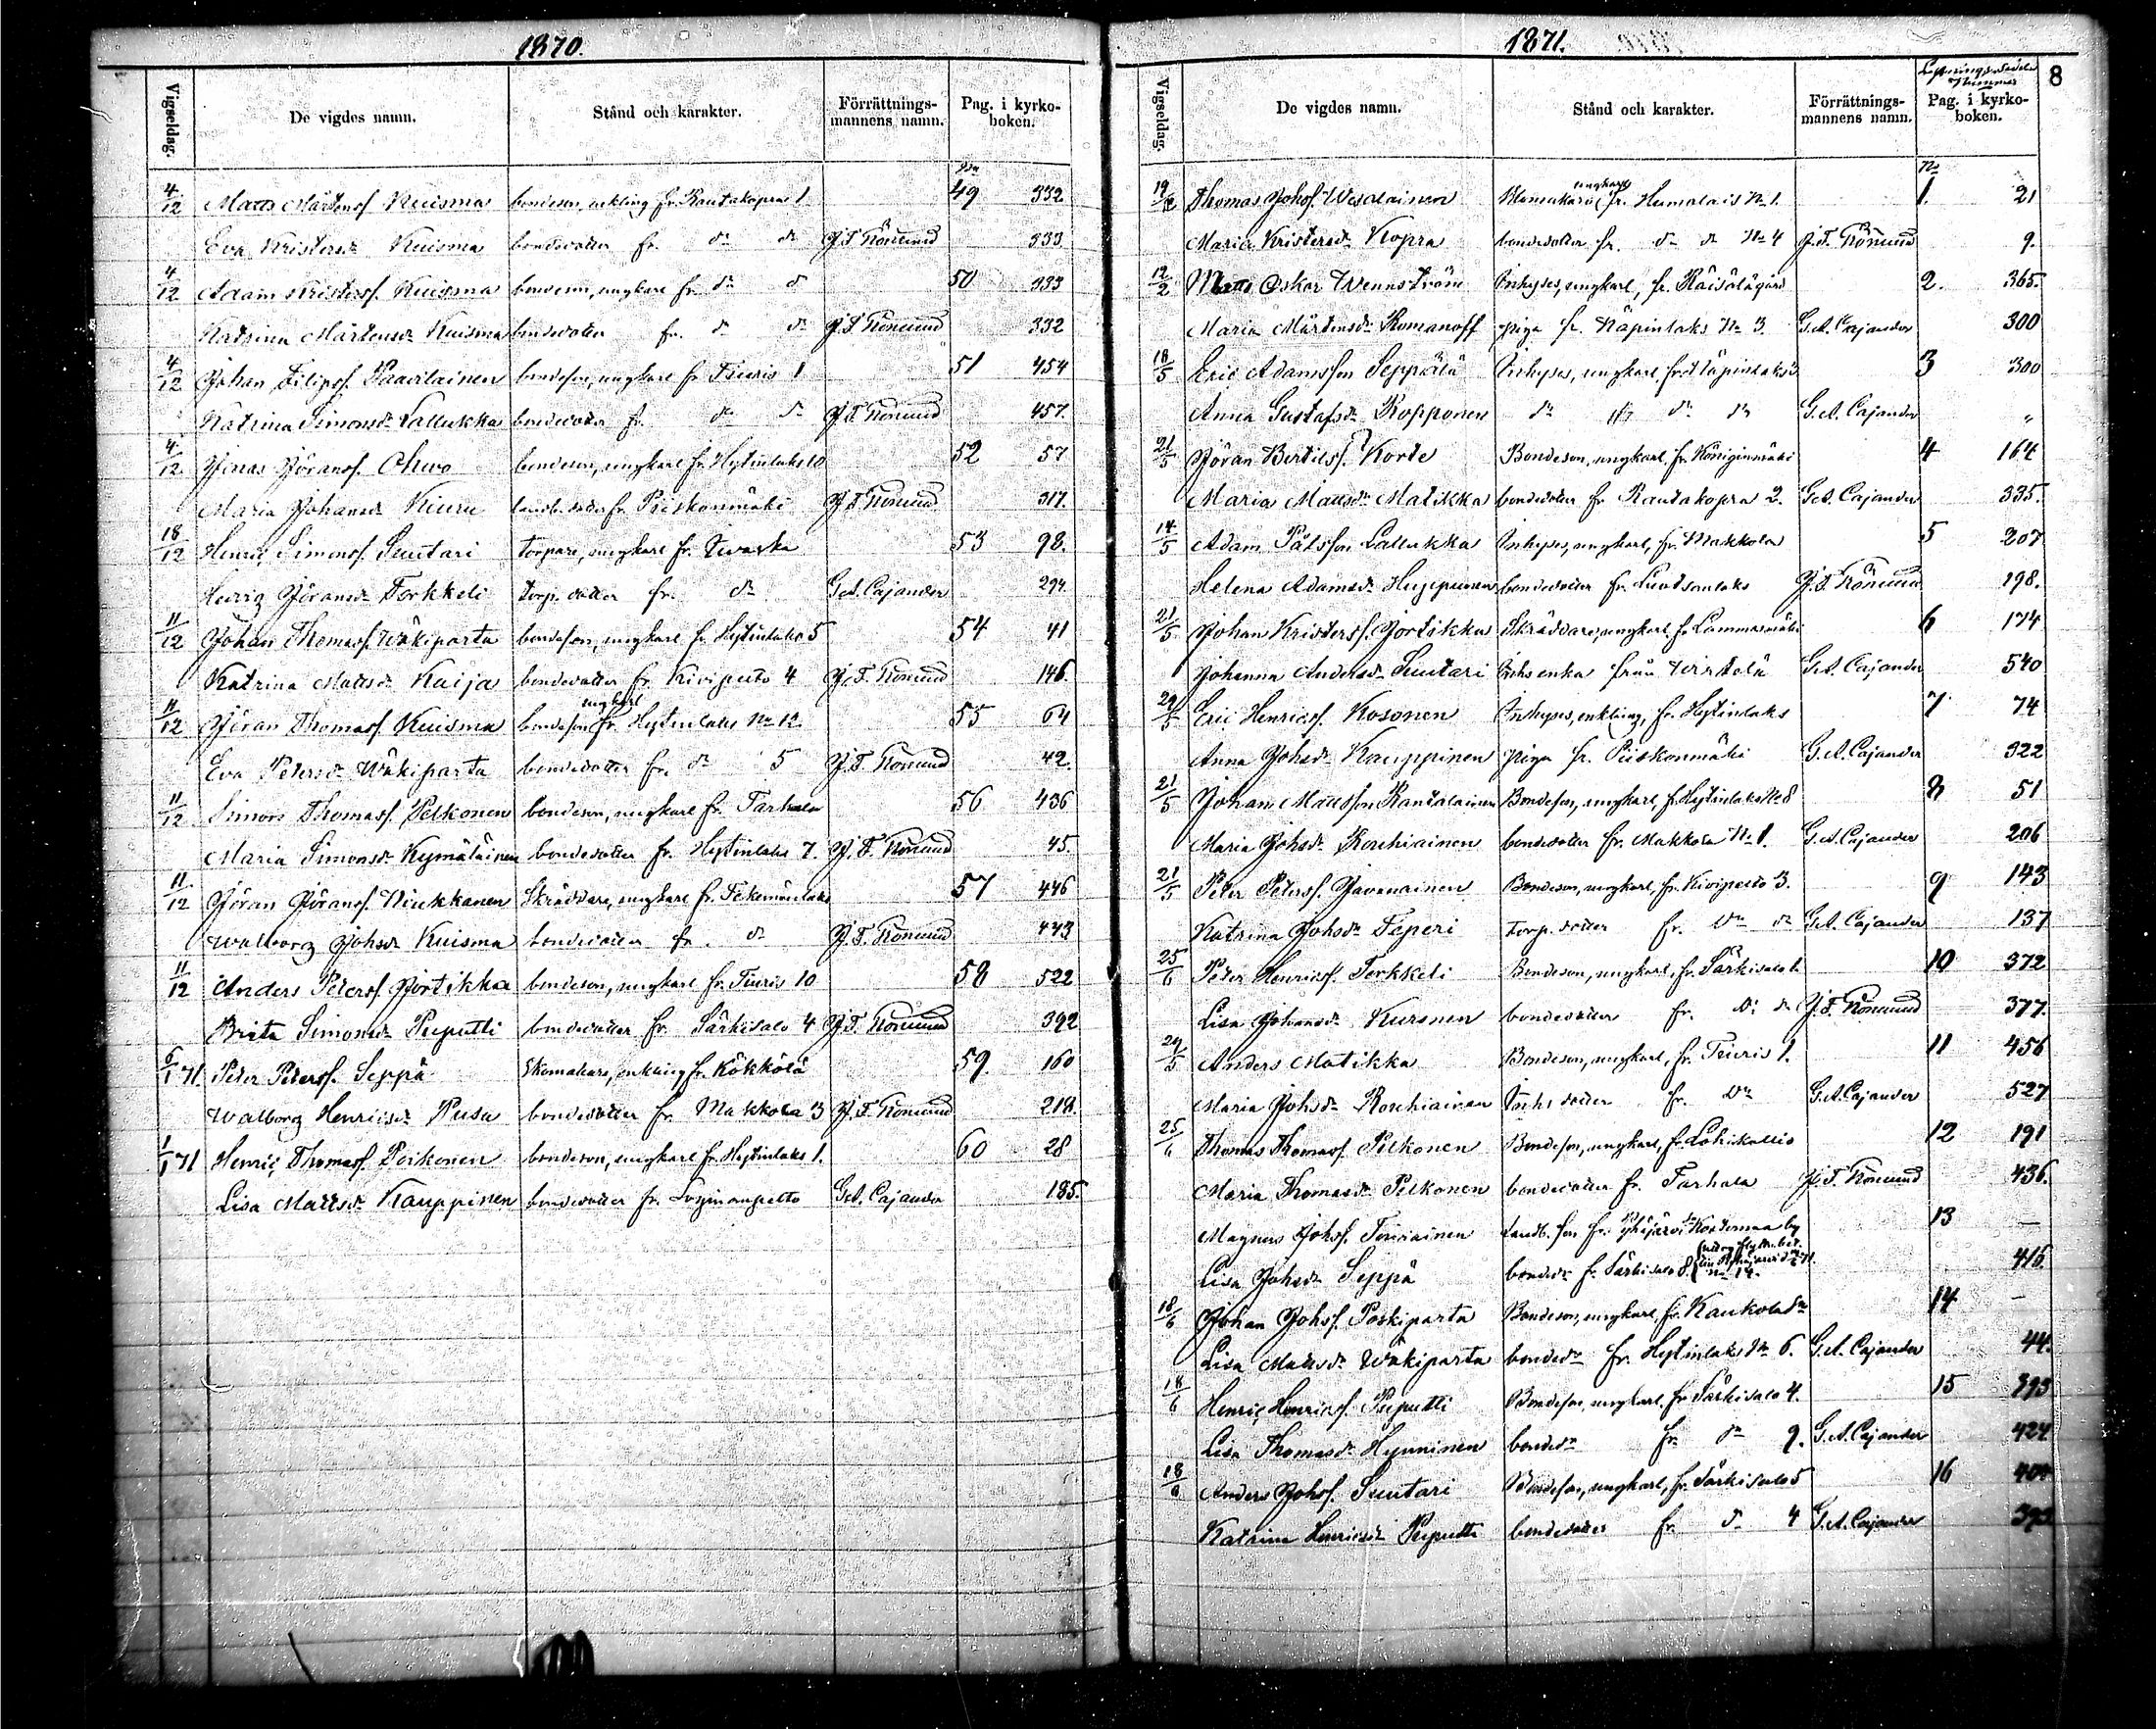 1870.
Vigseldag. De vigdes namn. Stånd och karakter. Förrättnings-mannens namn. Pag. i kyrko-boken.
4/12 Matts Mårtenss. Kuisma bondeson, enkling fr. Rautakopra 1 49 332
Eva Kristersdr Kuisma bondedotter fr. dr dr J. F. Römund 333
4/12 Adam Kristerss. Kuisma bondeson, ungkarl fr. dr dr 50 333
Katrina Mårtensdr Kuisma bondedotter fr. dr dr J. F. Römund 332
4/12 Johan Filipss. Paavilainen bondeson, ungkarl fr. Tiuris 1 51 454
Katrina Simonsdr Lallukka bondedotter fr. dr dr J. F. Römund 457.
4/12 Jonas Jöranss. Ohwo bondeson, ungkarl fr. Hytinlaks 10 52 57
Maria Johansdr Kiuru bondedotter fr. Piiskonmäki J. F. Römund 317.
18/12 Henric Simonss. Suutari torpare, ungkarl fr. 53 98.
Jöransdr Torkkeli torp. dotter fr. dr G. A. Cajander 294.
11/12 Johan Thomass. Wäkiparta bondeson, ungkarl fr. Hytinlaks 5 54 41
Katrina Mattsdr Kaija bondedotter fr. Kiviputo 4 J. F. Römund 146.
11/12 Jöran Thomass. Kuisma bondeson ungkarl fr. Hytinlaks No 12. 55 64
Eva Petersdr Wäkiparta bondedotter fr. dr 5 J. F. Römund 42.
11/12 Simon Thomass. Pelkonen bondeson, ungkarl fr. Tarhala 56 436
Maria Simonsdr Kymäläinen bondedotter fr. Hytinlaks 7. J. F. Römund 45.
11/12 Jöran Jöranss. Niukkanen Skräddare, ungkarl fr. 57 446
Walborg Johsdr Kuisma bondedotter fr. dr J. F. Römund 443
11/12 Anders Peterss. Jortikka bondeson, ungkarl fr. Tiuris 10 58 522
Brita Simonsdr Puputti bondedotter fr. Särkisalo 4 J. F. Römund 392
6/1 71. Peter Peterss. Seppä Skomakare, enkling fr. Kökkölä 59. 160
Walborg Henricsdr Pusa bondedotter fr. Makkola 3 J. F. Römund 218.
1/1 71 Henric Thomass. Poikonen bondeson, ungkarl fr. Hytinlaks 1. 60 28
Lisa Mattsdr Kauppinen bondedotter fr. G. A. Cajander 185.
1871.
8
Vigseldag. De vigdes namn. Stånd och karakter. Förrättnings-mannens namn. Pag. i kyrko-boken.
No
Thomas Johss. Wesalainen ungkarl fr. Humalais No 1. 1. 21
Maria Kristersdr Kopra bondedotter fr. dr dr No 4 J. F. Römund 9.
12/2 Matts Oskar Wennström Inhyses, ungkarl, fr. Räisälägård 2. 365.
Maria Mårtensdr Romanoff piga fr. Näpinlaks No 3. G. A. Cajander 300
18/5 Eric Adamsson Seppälä Inhyses, ungkarl fr. Näpinlaks 3 3 300
Anna Gustafsdr Kopponen dr dr dr G. A. Cajander "
21/5 Jöran Bertilss. Korte Bondeson, ungkarl, fr. Königinmäki 4 164
Maria Mattsdr Matikka bondedotter fr Rautakopra 2. G. A. Cajander 335.
14/5 Adam Pålsson Lallukka Inhyses, ungkarl, fr. Makkola 5 207
Helena Adamsdr Huppunen bondedotter fr. J. F. Römund 198.
21/5 Johan Kristerss. Jortikka Skräddare, ungkarl fr. Lammasmäki 6 174
Johanna Andersdr Suutari Inhs enka från Wirtelä G. A. Cajander 540
29/5 Eric Henricss. Kosonen Inhyses, enkling, fr. Hytinlaks 7 74
Anna Johsdr Kauppinen piga fr. Piiskonmäki G. A. Cajander 322
21/5 Johan Mattsson Rantalainen Bondeson, ungkarl, fr. Hytinlaks No 8 8 51
Maria Johsdr Roschiainen bondedotter fr. Makkola No 1. G. A. Cajander 206
21/5 Peter Peterss. Javanainen Bondeson, ungkarl, fr. Kiviputo 3. 9 143
Katrina Johsdr Teperi torp. dotter fr. Dr dr G. A. Cajander 137
25/6 Peter Henricss. Torkkeli Bondeson, ungkarl, fr. Särkisalo 10 372
Lisa Johansdr Kuronen bondedotter fr. Dr dr J. F. Römund 377.
29/5 Anders Matikka Bondeson, ungkarl, fr. Tiuris 1. 11 456
Maria Johsdr Roschiainen Inhs dotter fr. Dr G. A. Cajander 527
25/6 Thomas Thomass. Pelkonen Bondeson, ungkarl, fr. Lohikallio 12 191
Maria Thomasdr Pelkonen bondedotter fr. Tarhala J. F. Römund 436.
Magnus Johss. Tiuriainen Landb. son fr. Pyhäjärvi by 13 —
Lisa Johsdr Seppä bondedr fr. Särkisalo 8. 415.
18/6 Johan Johss. Poskiparta Bondeson, ungkarl, fr. Kaukola Sn 14 —
Lisa Mattsdr Wäkiparta bondedr fr. Hytinlaks No 6. G. A. Cajander 44.
18/6 Henric Henricss. Puputti Bondeson, ungkarl, fr. Särkisalo 4. 15 393
Lisa Thomasdr Hynninen bondedr fr. dr 9. G. A. Cajander 424
18/6 Anders Johss. Suutari Bondeson, ungkarl, fr. Särkisalo 5 16 401
Katrina Henricsdr Puputti bondedotter fr. dr 4 G. A. Cajander 393